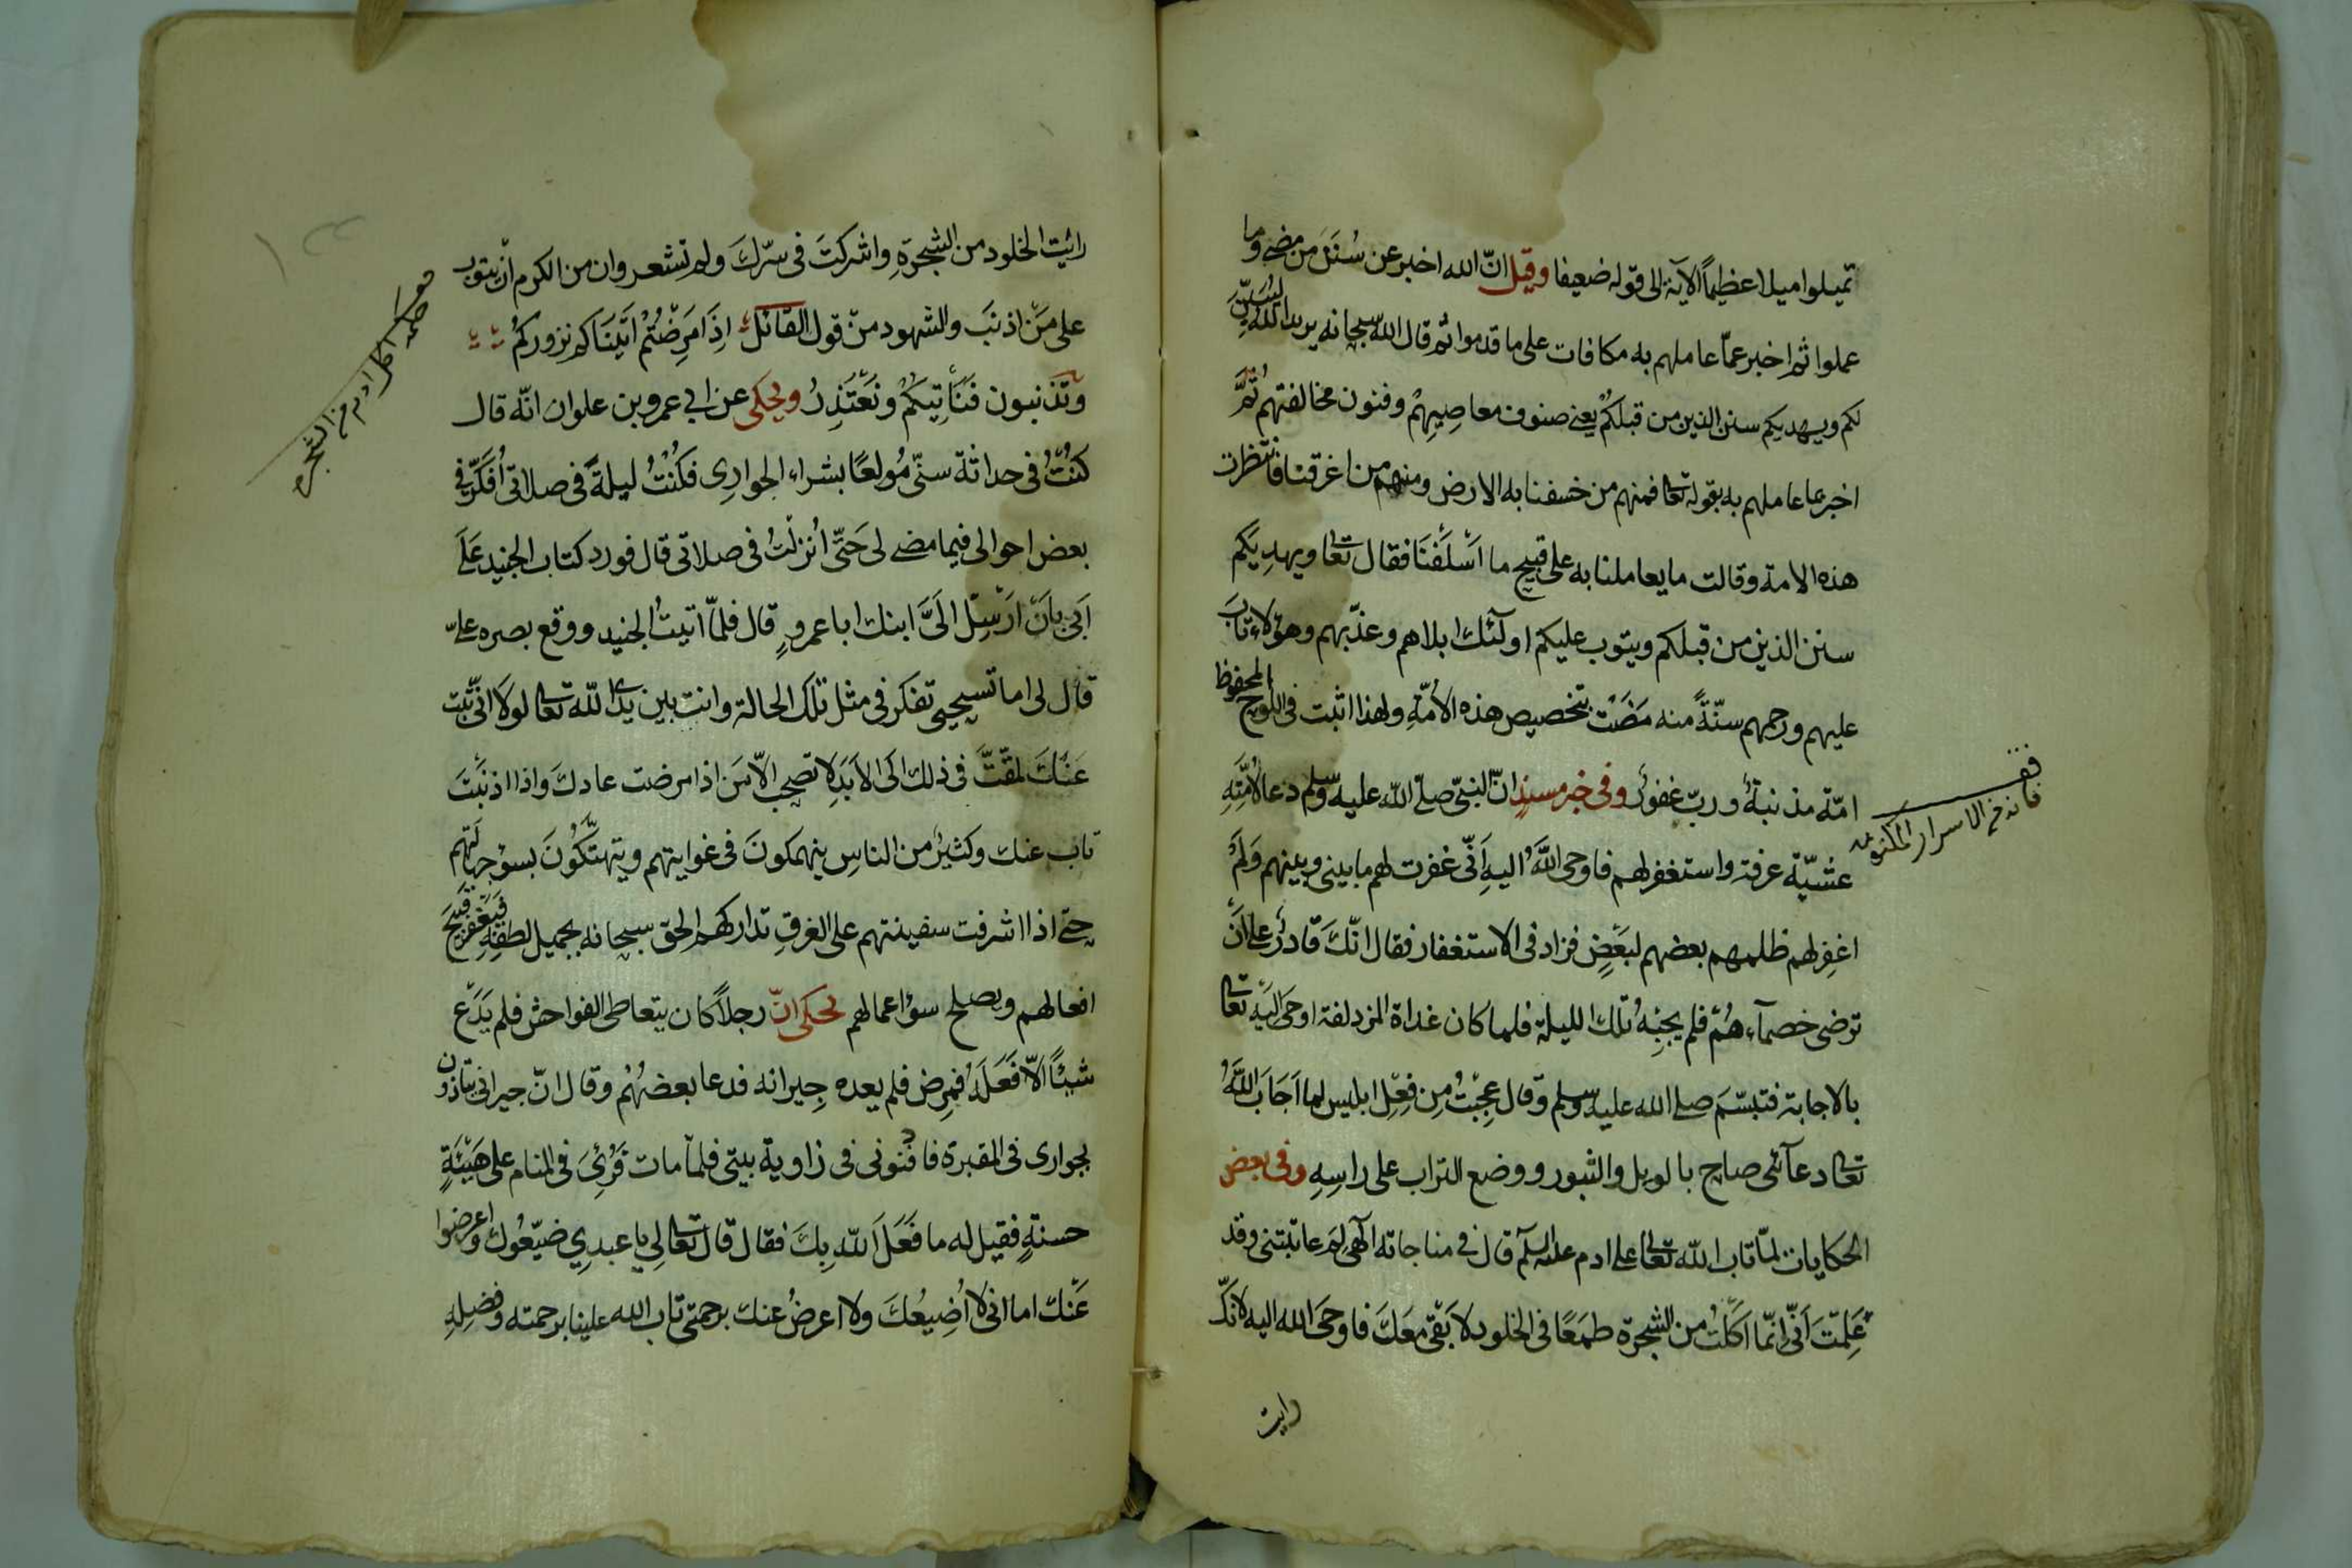 تميلوا ميلا عظيماً الآية الى قوله ضعيفا وقيل انّ الله اخبر عن سُنَن من مضى وما
عملوا ثم اخبر عمّا عاملهم به مكافات على ما قدموا ثم قال الله سبحانه يريد الله ليُبَيِّن
لكم ويهديكم سنن الذين من قبلكُم يعنى صنوف معاصِيهِمْ وفنون مخالفتهم ثُمَّ
اخبر عما عاملهم به بقوله تعا فمنهم من خسفنا به الارض ومنهم من اغرقنا فانتظرت
هذه الامة وقالت ما يعاملنا به على قبيح ما اَسْلَفْنَا فقال تعا ويهدِيَكُم
سنن الذين من قبلكم ويتوب عليكم اولٓئك ابلاهم وعذّبهم وهؤلاء تابَ
عليهم ورحمهم سنّةً منه مَضَتْ بتخصيص هذه الاُمّةِ ولهذا اثبت فى اللوح المحفوظ
امّة مذنبةٌ وربّ غفورٌ وفى خبر مسندٍ انّ النبىّ صلّى الله عليه وسلم دعا لاُمّتِهِ
عشيّة عرفة واستغفر لهم فاوحى اللهُ اليهِ اَنّى غفرت لهم ما بينى وبينهم وَلَمْ
اغفِر لهم ظلمهم بعضهم لبَعْضٍ فزاد فى الاستغفار فقال انّكَ قادرٌ على اَنْ
ترضى خصمآءهُمْ فلم يجِبْهُ تلك الليلة فلما كان غداة المزدلفة اوحى اليْهِ تعا
بالاجابة فتبسّمَ صلى الله عليه وسلم وقال عجِبْتُ مِن فِعْلِ ابليس لما اَجَابَ اللهُ
تعا دعآئى صاح بالويل والثبور ووضع التراب على راسِهِ وفى بعض
الحكايات لمّا تاب الله تعا على ادم عليه السلم قال فى مناجاته الٓهى لِمَ عاتبتنى وقد
عَلِمْتَ اَنّى انّما اَكَلْتُ من الشجرة طمَعًا فى الخلود لاَبقى معَكَ فاوحَى الله اليه لانكّ
رايت
فانه من الاسرار المكنونه
رايْت الخلود من الشجرةِ واشركتَ فى سرّكَ ولم تشعر وان من الكرم اَنْ يتوب
على مَنْ اذنَب والشهود منْ قول القائلُ اِذَا مَرِضْتُمْ اَتَيْنَاكم نزوركُمْ
وتذنبون فَنَأْتِيكُمْ ونَعْتَذِرُ ويُحكى عن ابى عمرو بن علوان انّه قال
كنتُ فى حداثة سنّى مُولعًا بشراء الجوارِى فكُنْتُ ليلةً فى صلاتى اُفكّر فى
بعض احوالى فيما مضى لى حَتّى اُنزلْتُ فى صلاتى قال فورد كتاب الجنيد عَلَى
اَبى بِاَنْ اَرْسِلْ الىَّ ابنك ابا عمروٍ قال فلمّا اتيتُ الجنيد ووقع بصره علىّ
قال لى اما تستحيى تفكر فى مثل تلك الحالة وانت بين يدى الله تعا لولا انّى تبْت
عَنْكَ لمقتَّ فى ذلك الى الاَبَدِ لا تصحب الّا مَن اذا مرضت عادكَ واذا اذنَبْتَ
تاب عنك وكثيرٌ من الناسِ ينهمكونَ فى غوايتهم ويتهتّكُونَ بسوء جهالَتِهم
حتّى اذا اشرفت سفينتهم على الغرقِ تداركهم الحق سبحانه بجميل لطفِهِ فيَغْفِر قبيحَ
افعالهم ويصلح سؤ اعمالهم يُحكى انّ رجلاً كان يتعاطى الفواحش فلم يَدَعْ
شيئًا الّا فَعَلَهُ فمرِض فلم يعده جِيرانه فدعا بعضهُمْ وقال انّ جيرانى يتاذون
بجوارى فى المقبرة فادفنونى فى زاوية بيتى فلمّا مات فَرُئِىَ فى المنام على هَيْئَةٍ
حسنةٍ فقيل له ما فَعَلَ الله بِكَ فقال قال تعا لى يا عبدِي ضيّعُوك واعرضوا
عَنْك اما انى لا اُضِيعُكَ ولا اعرضُ عنك برحمتى تاب الله علينا برحمته وفضلِهِ
حكمة اكل ادم من الشجرة